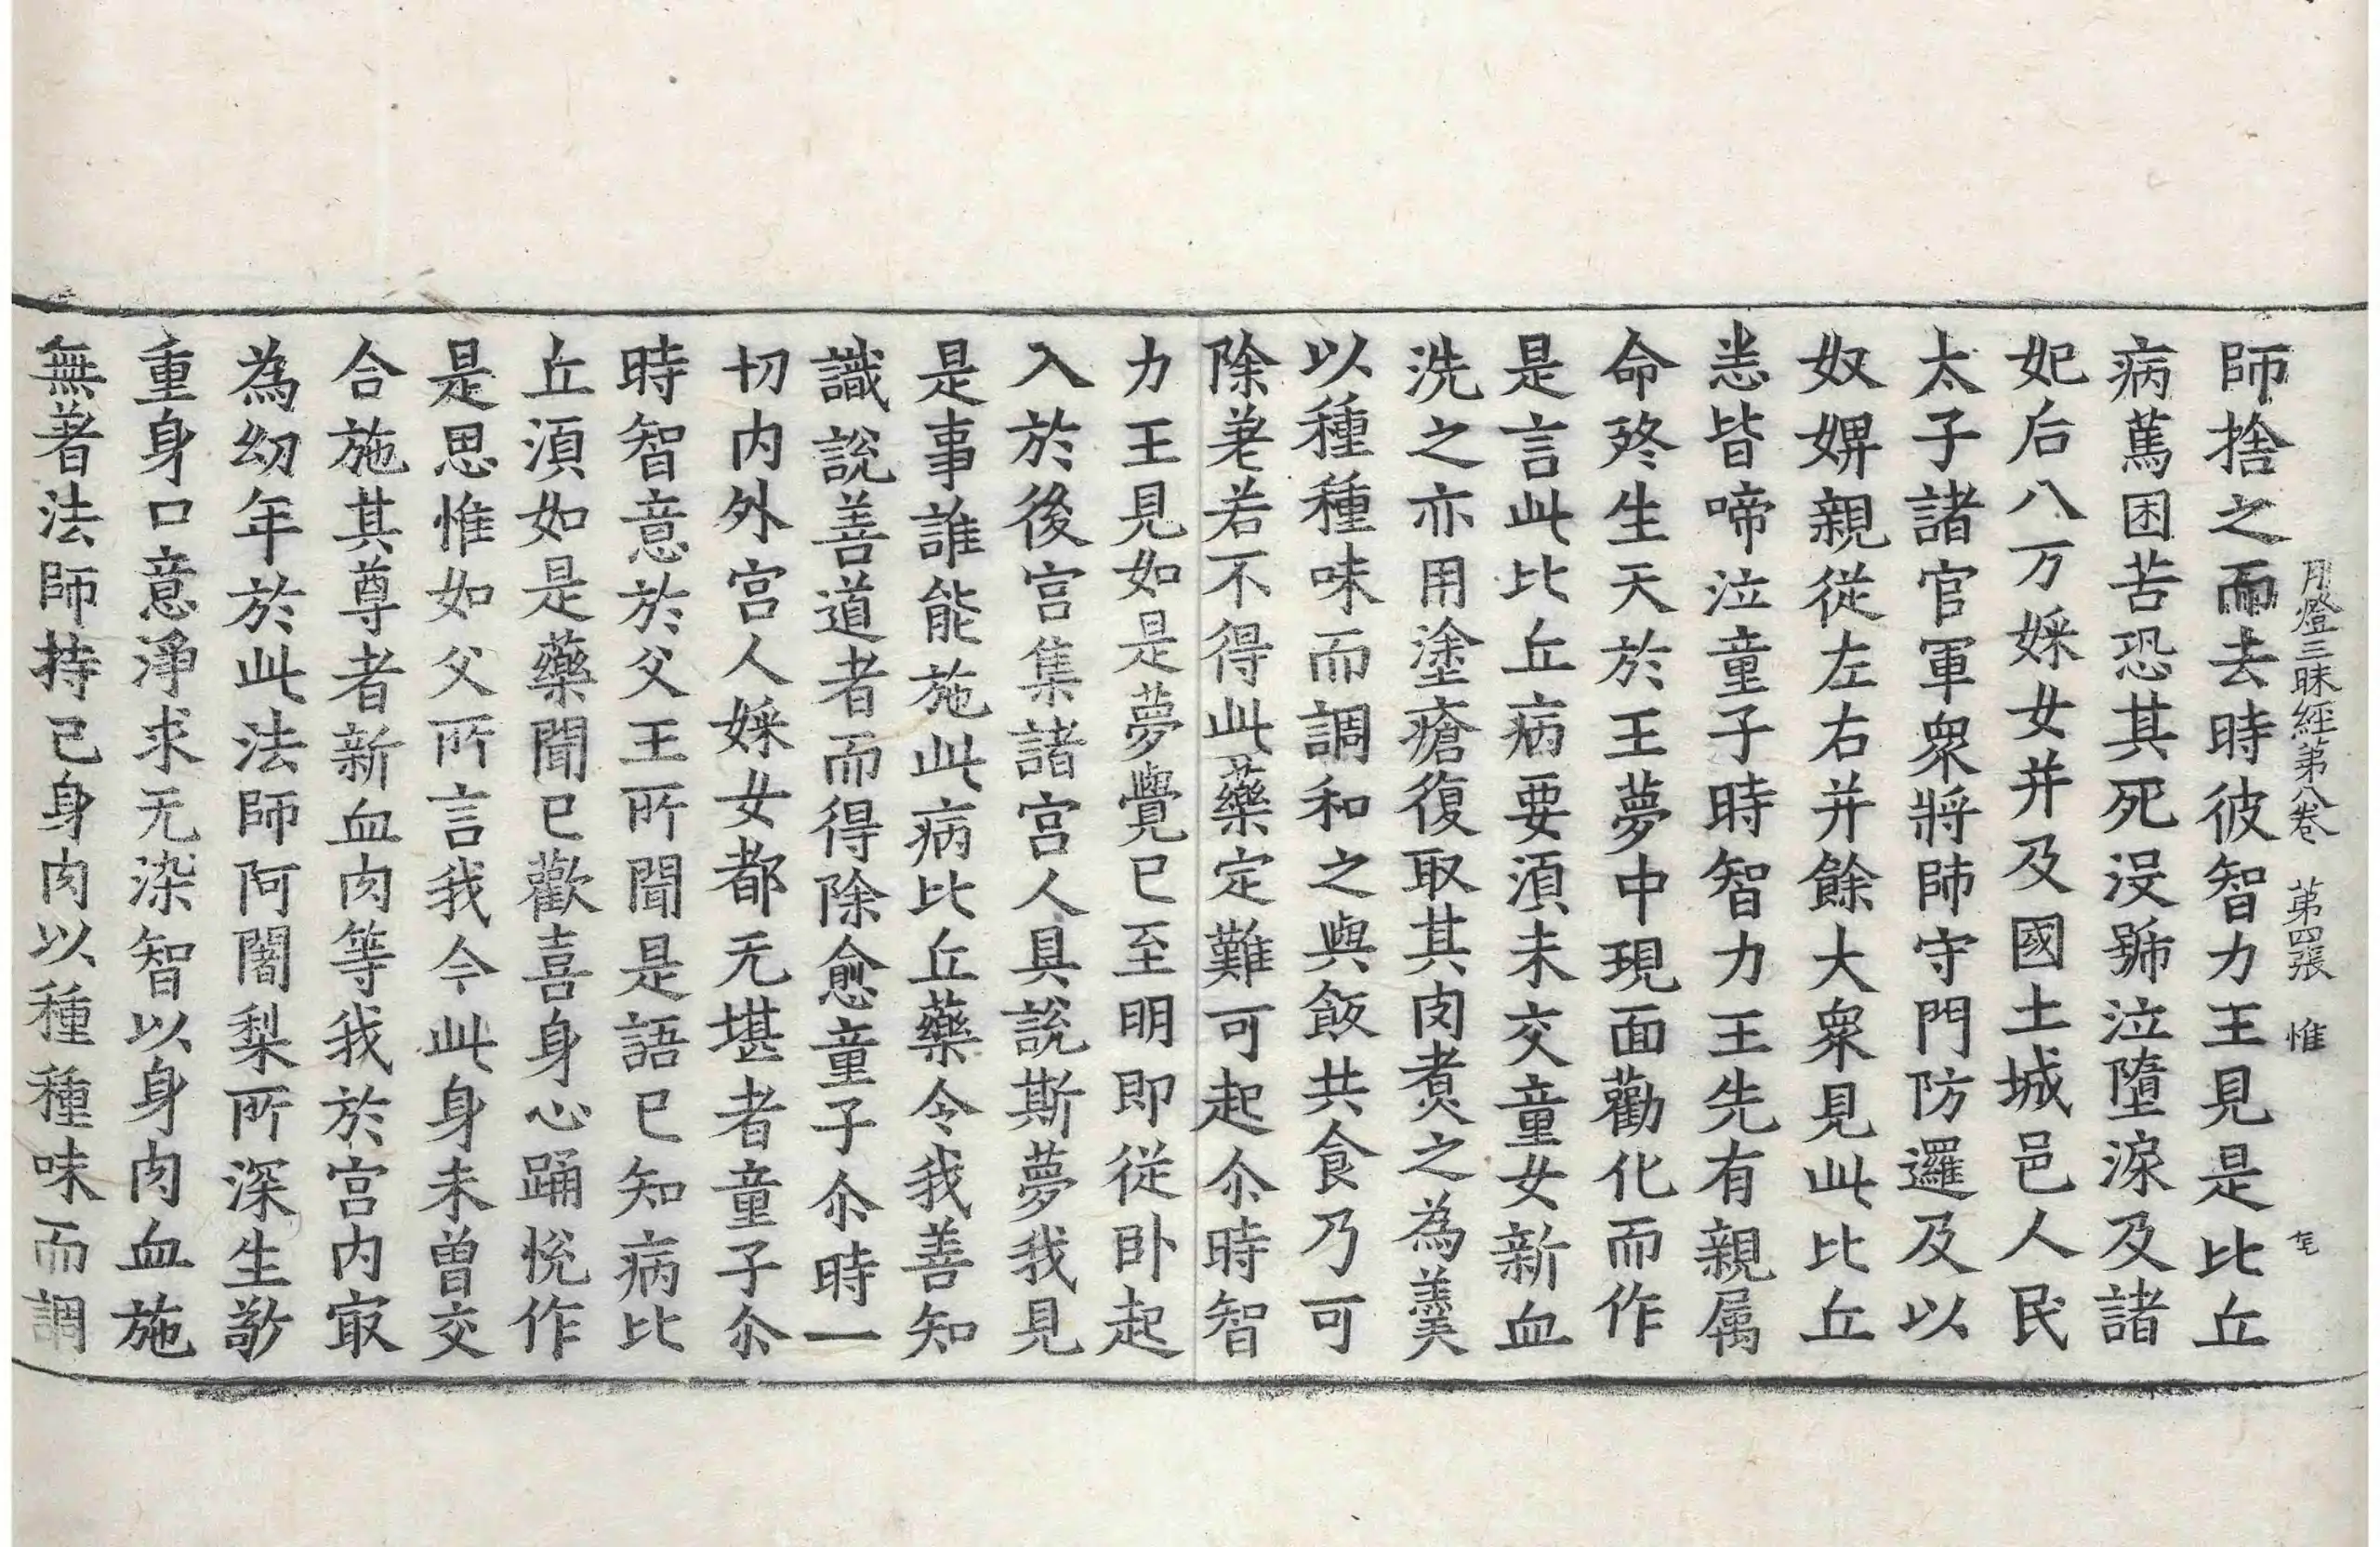 月燈三昧經第八卷 第四張 惟
師捨之而去時彼智力王見是比丘
病篤困苦恐其死没號泣墮淚及諸
妃后八万婇女并及國土城邑人民
太子諸官軍衆將師守門防邏及以
奴婢親從左右并餘大衆見此比丘
恙皆啼泣童子時智力王先有親属
命終生天於王夢中現面勸化而作
是言此比丘病要湏未交童女新血
洗之亦用塗瘡復取其肉煮之為羹
以種種味而調和之與飯共食乃可
除差若不得此藥定難可起尒時智
力王見如是夢覺已至明即從卧起
入於後宮集諸宮人具說斯夢我見
是事誰能施此病比丘藥令我善知
識說善道者而得除愈童子尒時一
切内外宮人婇女都无堪者童子尒
時智意於父王所聞是語已知病比
丘湏如是藥聞已歡喜身心踊悅作
是思惟如父所言我今此身未曾交
合施其尊者新血肉等我於宮内㝡
為幼年於此法師阿闍梨所深生敬
重身口意淨求无染智以身肉血施
無著法師持已身肉以種種味而調